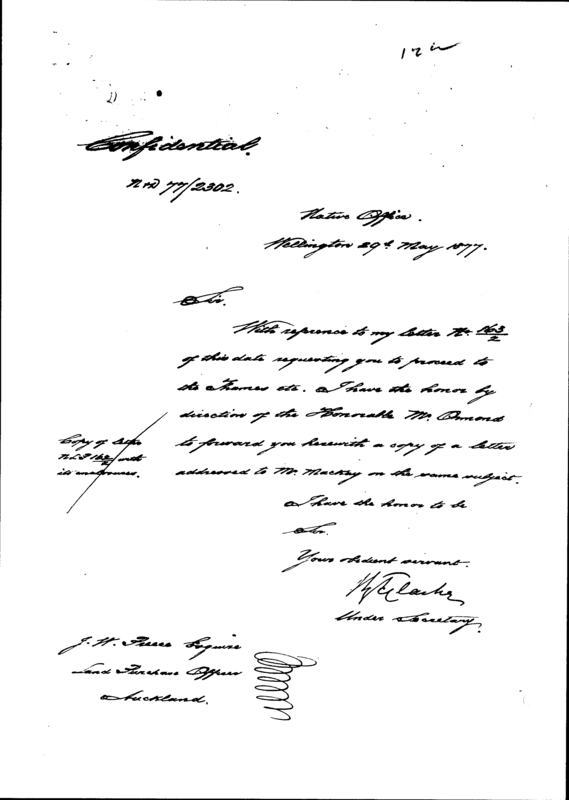 Confidential.
N & D 77/2302.
Native Office.
Wellington 29th May 1877.
Sir.
With reference to my letter No. 163/2
of this date requesting you to proceed to
the Thames etc. I have the honor by
direction of the Honorable Mr. Ormond
to forward you herewith a copy of a letter
addressed to Mr. Mackay on the same subject.
Copy of letter
N.L.P 162/2 with
its enclosures.
I have the honor to be
Sir.
Your obedient servant.
H T Clarke
Under Secretary.
J. W. Preece Esquire
Land Purchase Officer
Auckland.